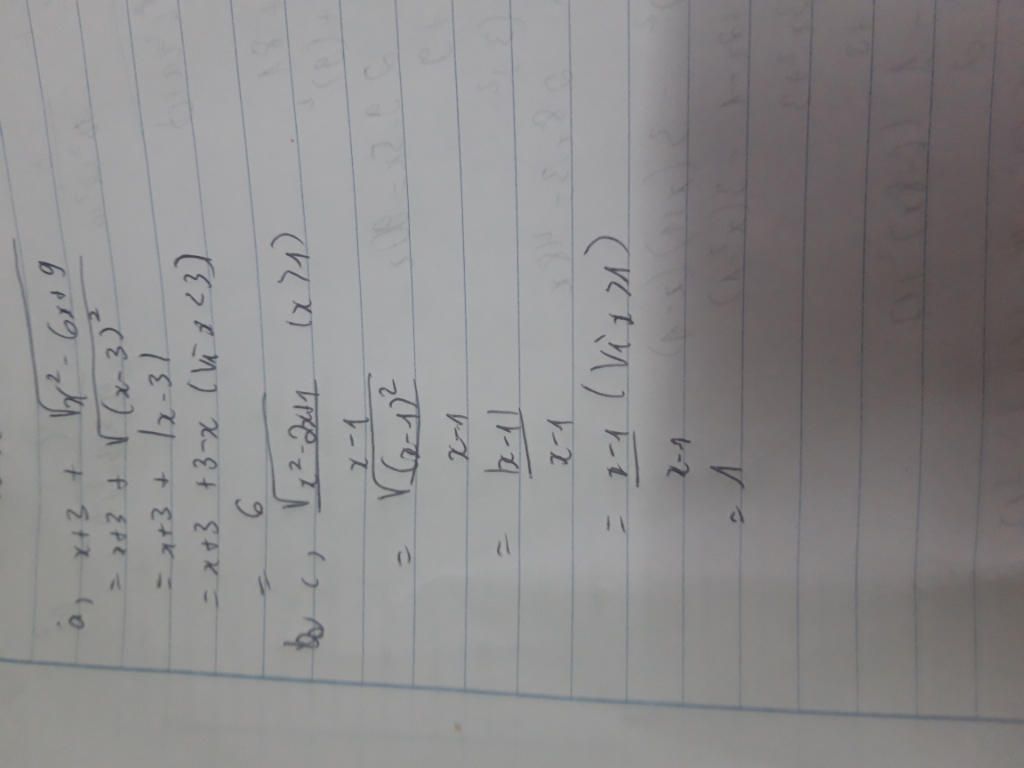 a, x+3 + √x²-6x+9
= x+3 + √(x-3)²
= x+3 + |x-3|
= x+3 +3-x (Vì x<3)
= 6
c, √x²-2x+1 / x-1 (x>1)
= √(x-1)² / x-1
= |x-1| / x-1
= x-1 / x-1 (Vì x>1)
= 1